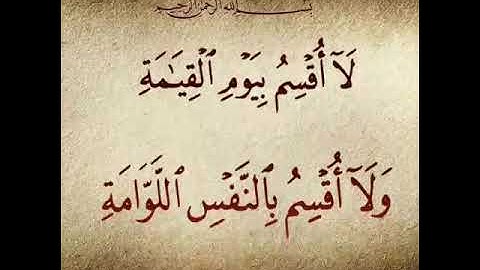 بسم الله الرحمن الرحيم
لَآ أُقۡسِمُ بِيَوۡمِ ٱلۡقِيَٰمَةِ
وَلَآ أُقۡسِمُ بِٱلنَّفۡسِ ٱللَّوَّامَةِ